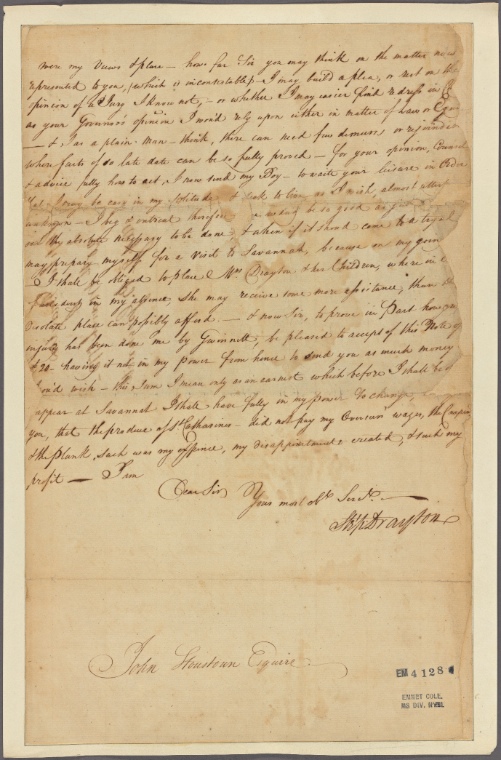 were my Views & place — how far Sir you may think on the matter now
represented to you, which is incontestable, I may build a plea, or rest on the
opinion of a Jury I know not, — or whether I may easier find redress in
as your Governor's opinion I would rely upon either in matter of Law or
— & I as a plain man — think, there can need few demurs, or rejoinder
when facts of so late date can be so fully proved — for your opinion, Council
& advice fully how to act, I now send my Boy — to waite your leisure in Order
that I may be easy in my solitude, & seek to live, as I wish almost
I beg & intreat therefore so good as
me the absolute necessary to be done & when if it should come to a tryal
may prepare myself for a visit to Savannah, because on my going
I shall be obliged to place Mrs Drayton & her Children, where in
in my absence she may receive some more assistance, than
desolate place can possibly afford. — & now Sir, to prove in Part how
injury has been done me by Gwinnett, be pleased to accept of this Note
£20 — having it not in my Power from home to send you as much money
I cou'd wish — this Sum I mean only as an earnest which before I shall be
appear at Savannah I shall have fully in my power to change,
you, that the produce of St Catharines — did not pay my Overseers wages, the
& the Plank, such was my expence, my disappointment created, & such my
profit — I am
Dear Sir,
Your most Obt Servt —
Drayton
John Houstoun Esquire
EM 4128
EMMET COLL.
MS DIV. NYPL